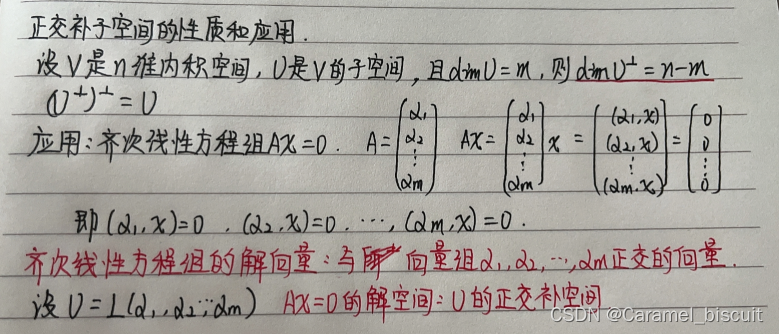 正交补子空间的性质和应用.
设V是n维内积空间,U是V的子空间,且dimU=m,则dimU⊥=n-m
(U⊥)⊥=U
应用:齐次线性方程组AX=0. A=(α1 α2 ⋮ αm) AX=(α1 α2 ⋮ αm)x=[(α1,x) (α2,x) ⋮ (αm,x)]=[0 0 ⋮ 0]
即(α1,x)=0,(α2,x)=0,⋯,(αm,x)=0.
齐次线性方程组的解向量:与向量组α1,α2,⋯,αm正交的向量.
设U=L(α1,α2⋯αm) AX=0的解空间:U的正交补空间
CSDN @Caramel_biscuit